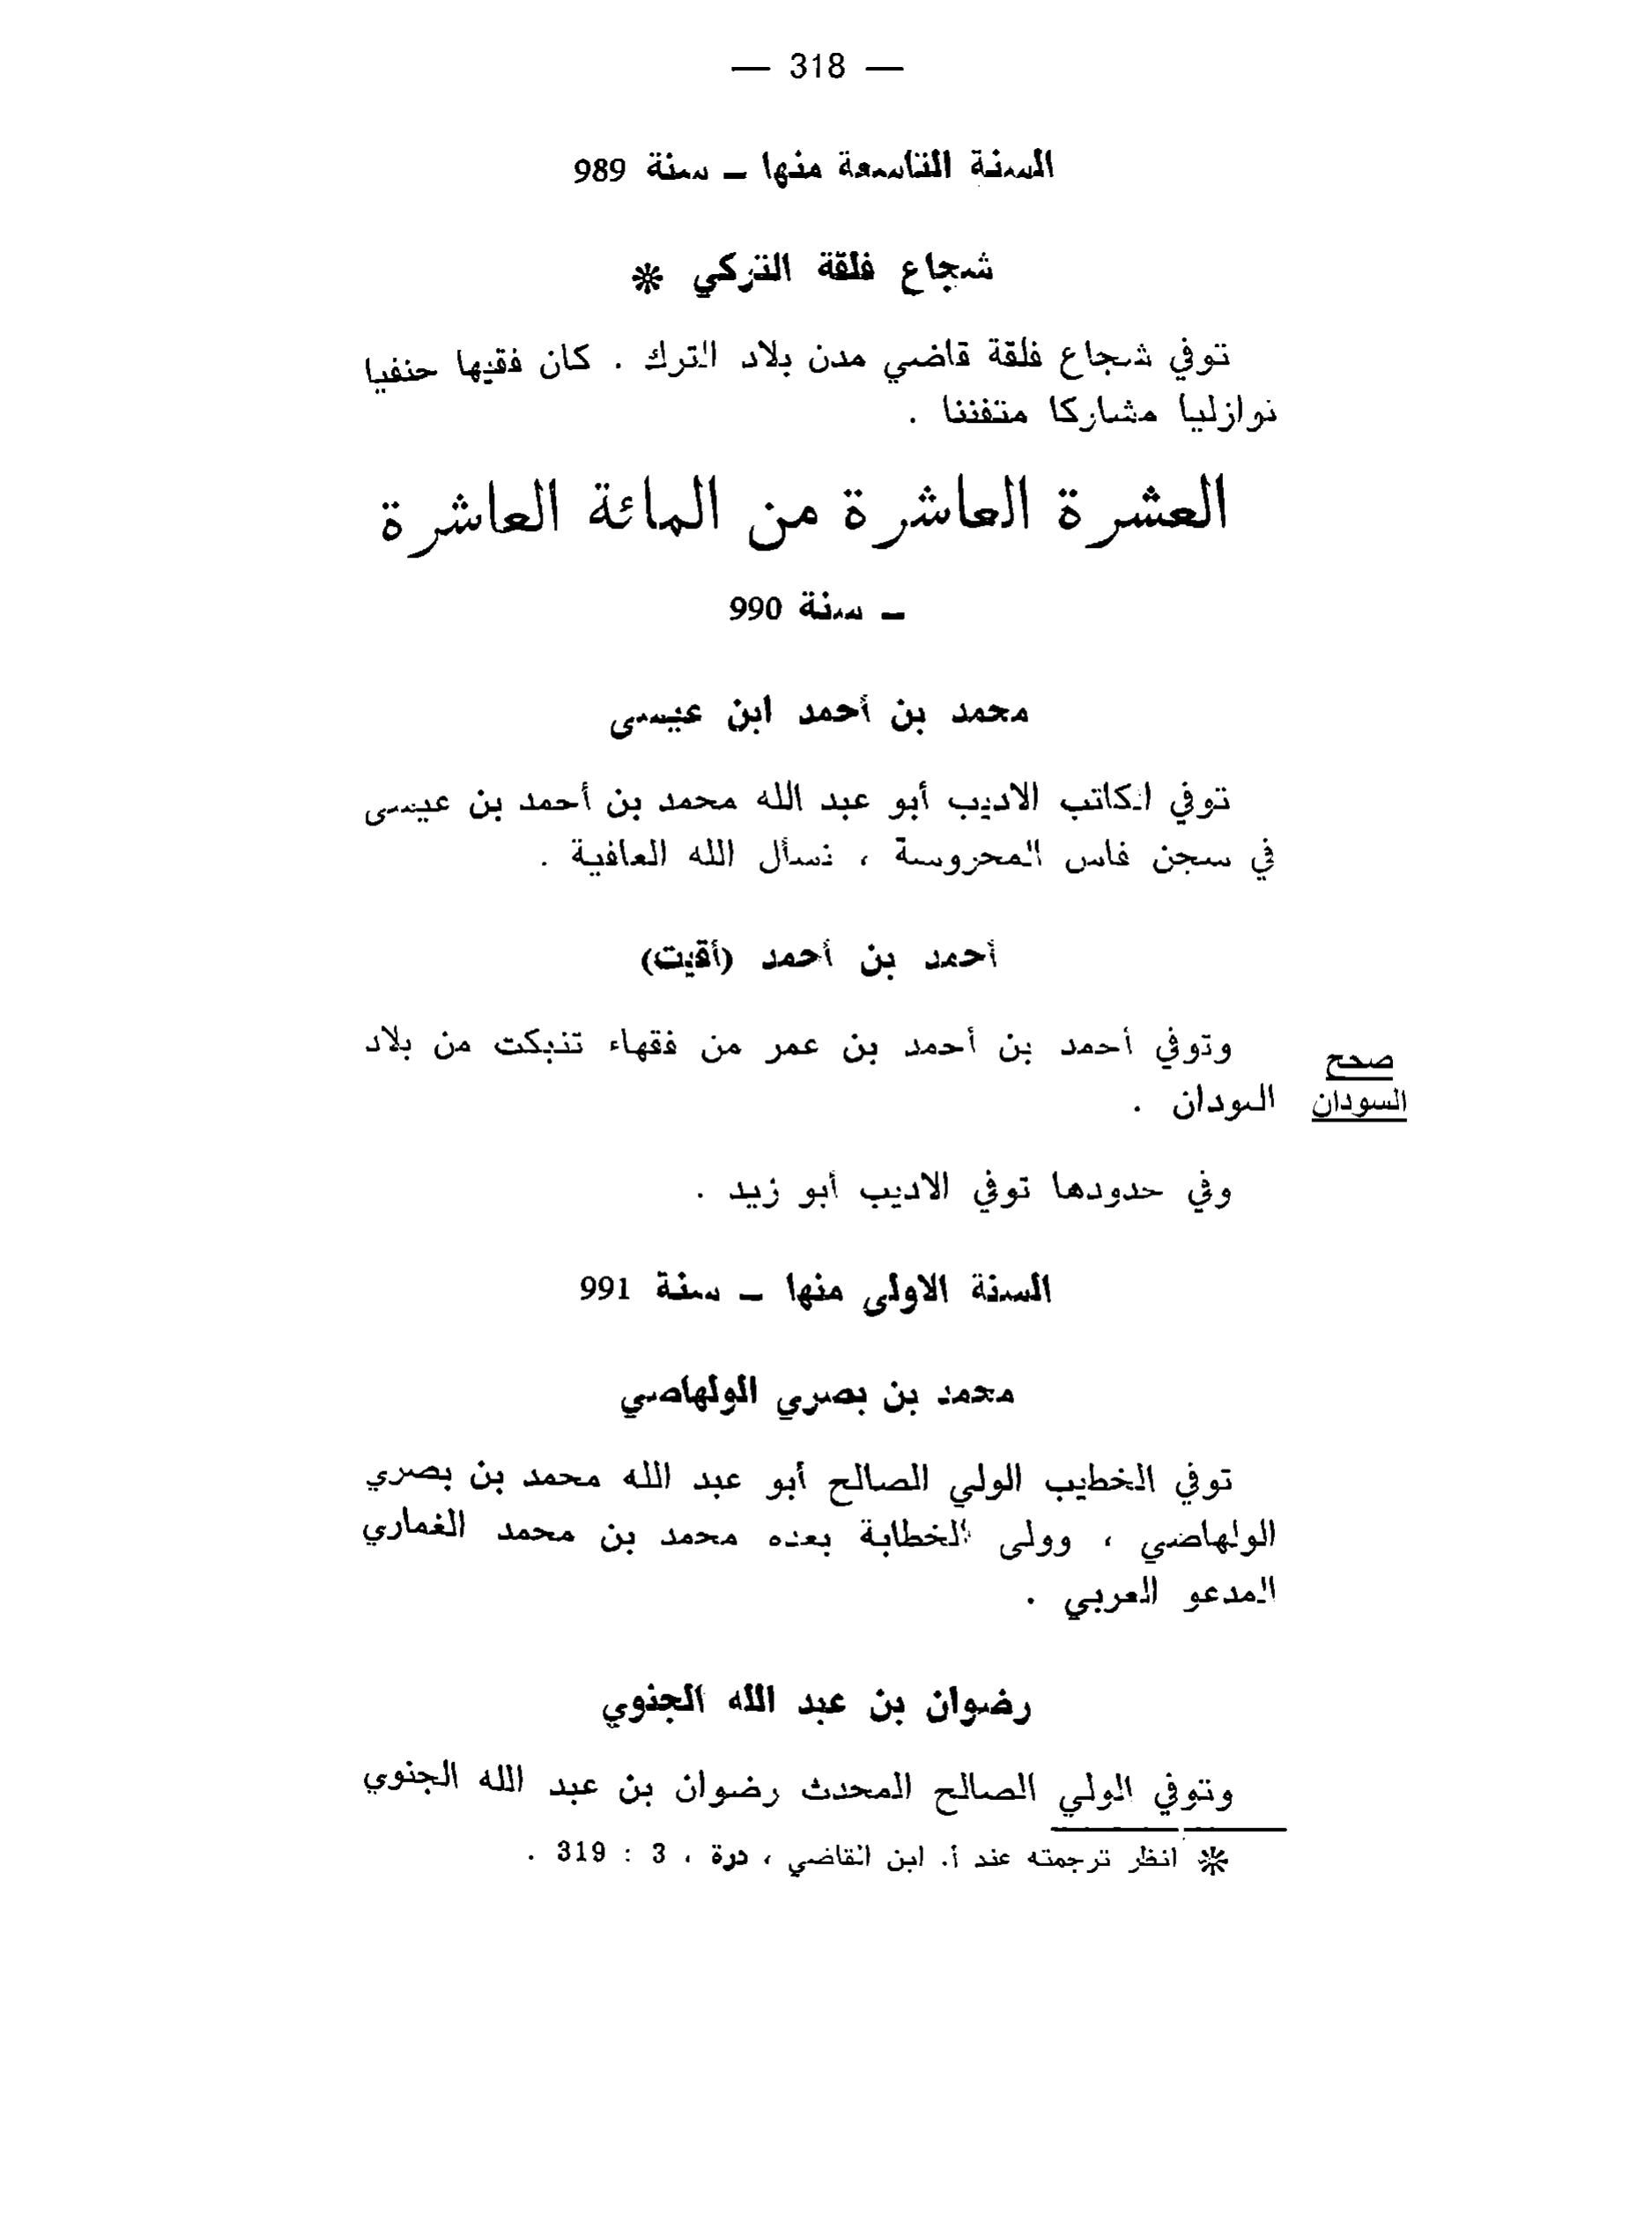 — 318 —
السنة التاسعة منها ـ سنة 989
شجاع فلقة التركي *
توفي شجاع فلقة قاضي مدن بلاد الترك . كان فقيها حنفيا
نوازليا مشاركا متفننا .
العشرة العاشرة من المائة العاشرة
ـ سنة 990
محمد بن أحمد ابن عيسى
توفي الكاتب الاديب أبو عبد الله محمد بن أحمد بن عيسى
في سجن فاس المحروسة ، نسأل الله العافية .
أحمد بن أحمد (أقيت)
وتوفي أحمد بن أحمد بن عمر من فقهاء تنبكت من بلاد
صحح
السودان .
السودان
وفي حدودها توفي الاديب أبو زيد .
السنة الاولى منها ـ سنة 991
محمد بن بصري الولهاصي
توفي الخطيب الولي الصالح أبو عبد الله محمد بن بصري
الولهاصي ، وولى الخطابة بعده محمد بن محمد الغماري
المدعو العربي .
رضوان بن عبد الله الجنوي
وتوفي الولي الصالح المحدث رضوان بن عبد الله الجنوي
* انظر ترجمته عند أ. ابن القاضي ، درة ، 3 : 319 .